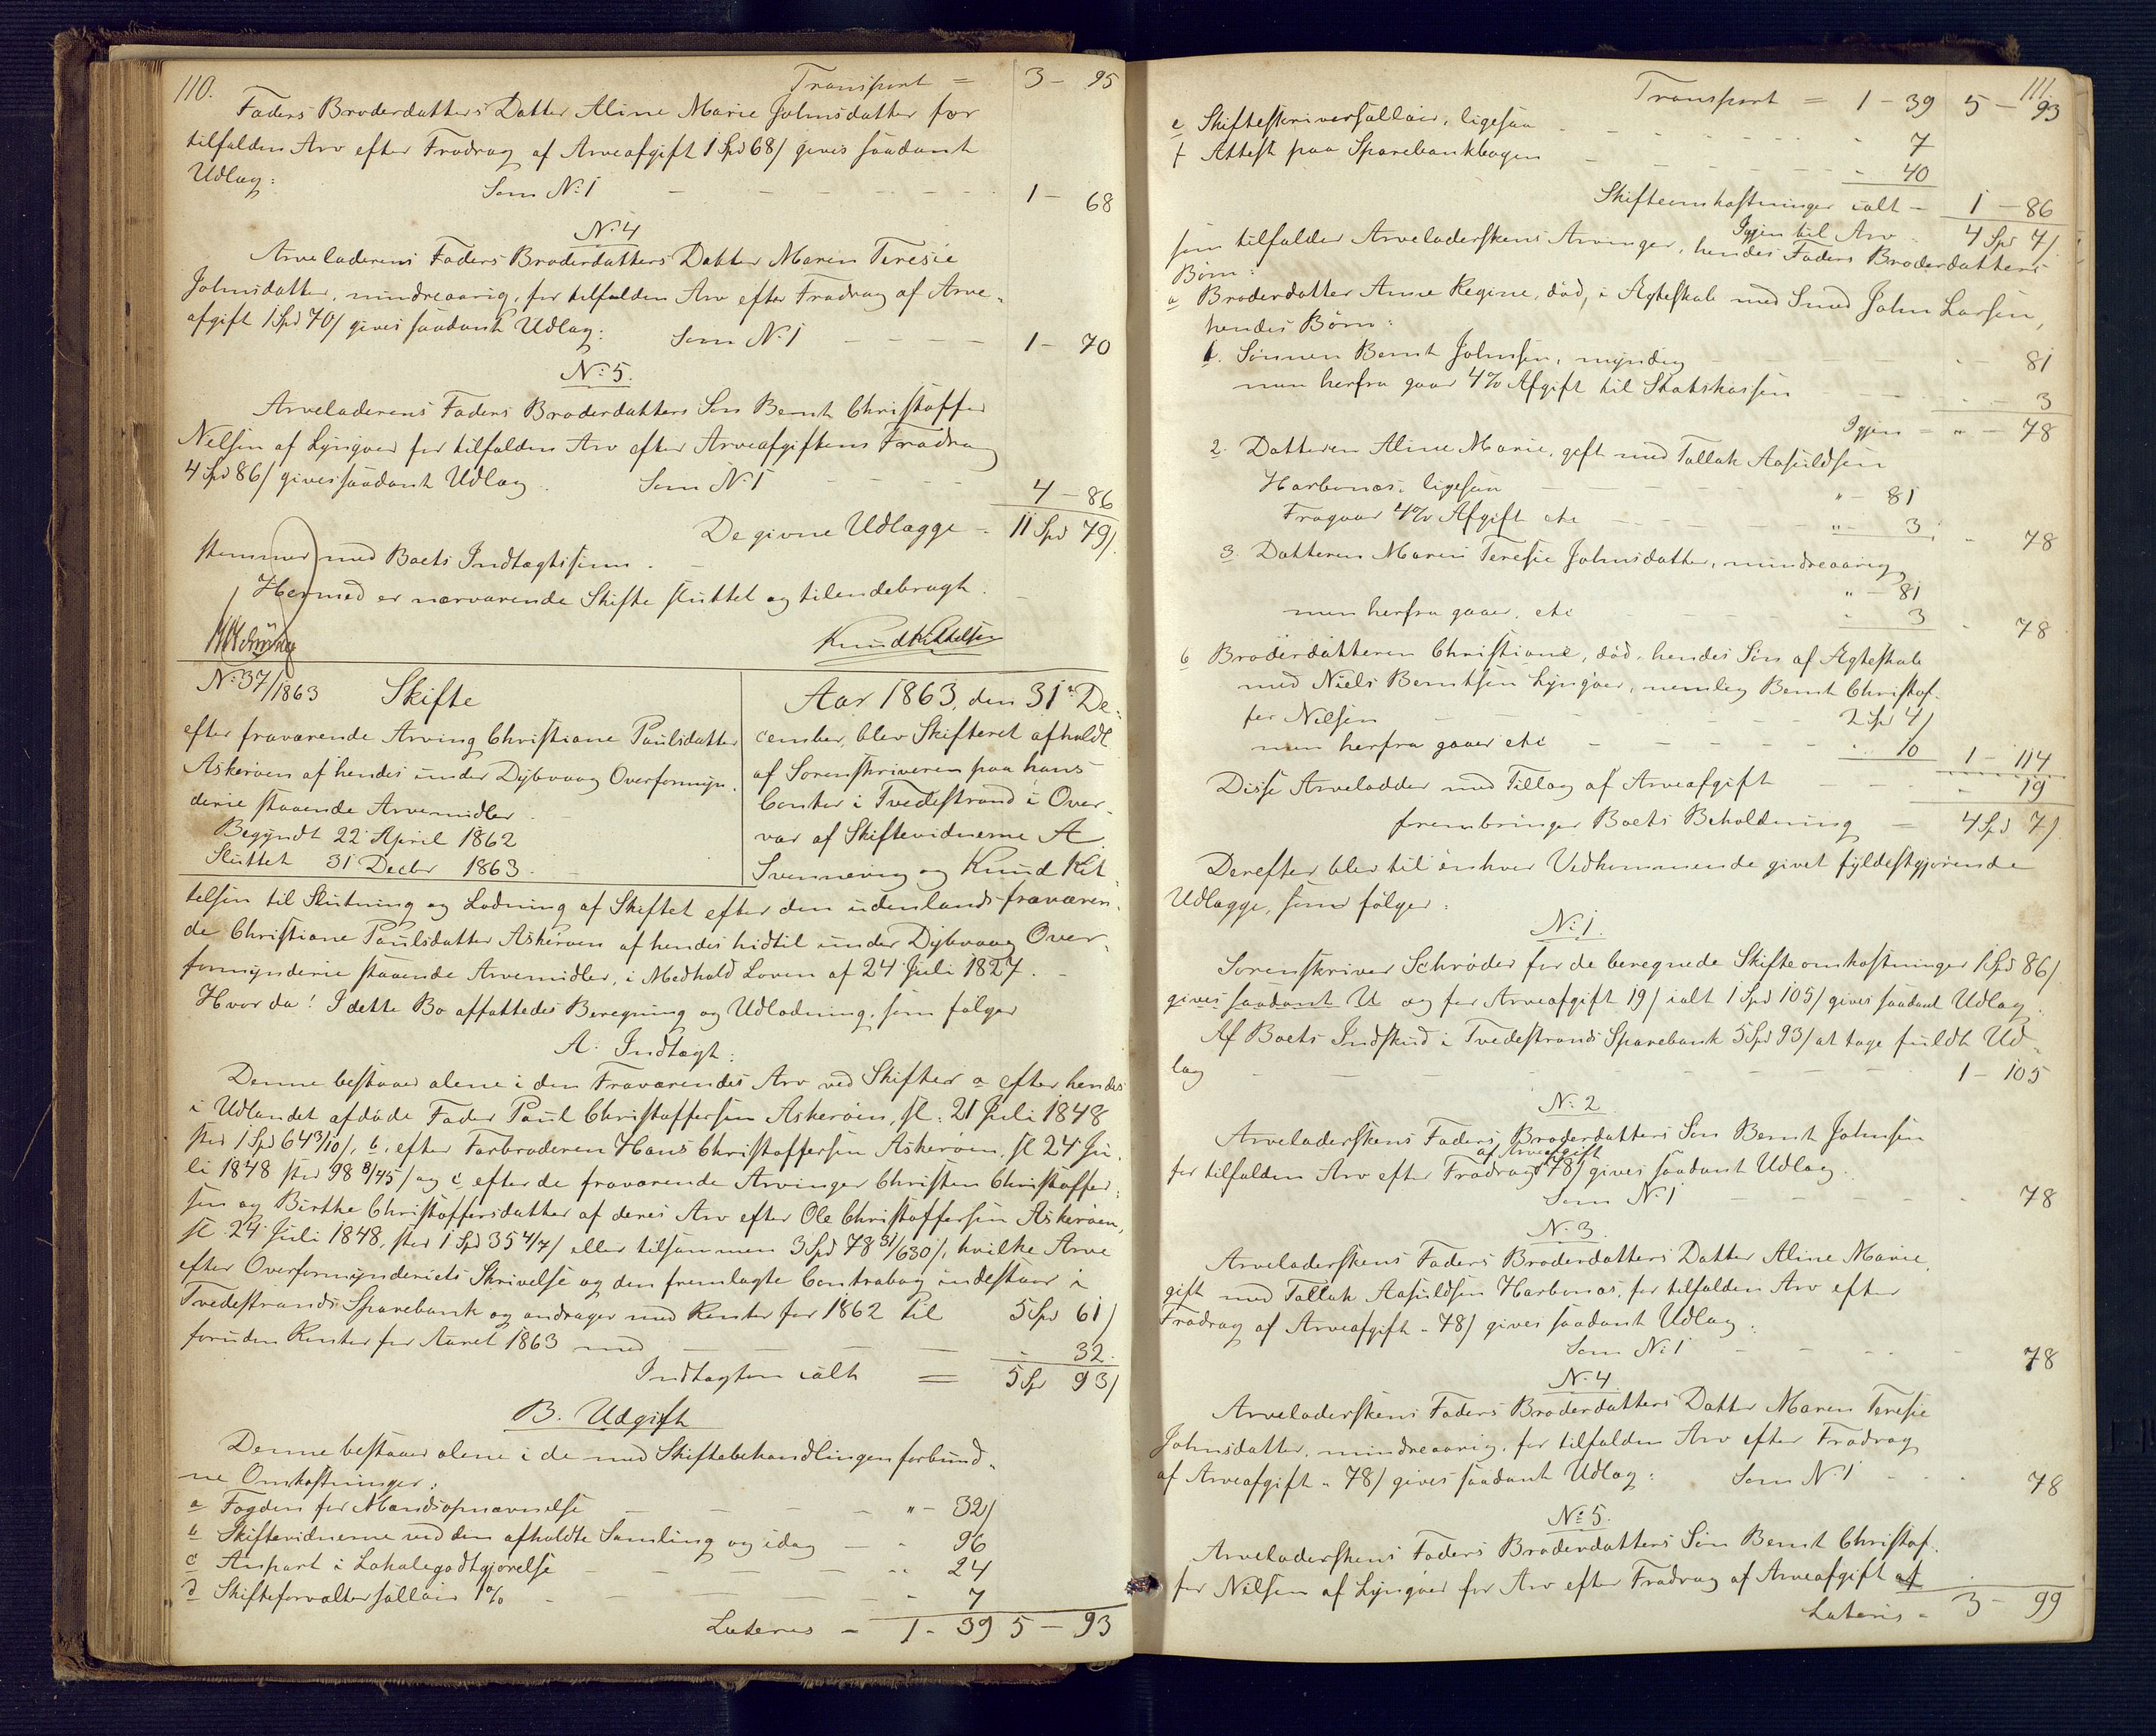 110.
Transport = 3 - 95
Faders Broderdatters Datter Aline Marie Johnsdatter for
tilfalden Arv efter Fradrag af Arveafgift 1 Spd 68 ß gives saadant
Udlæg:
Som No 1 - - - - - 1 - 68
No 4
Arveladerens Faders Broderdatters Datter Maren Teresie
Johnsdatter, mindreaarig, for tilfalden Arv efter Fradrag af Arve-
afgift 1 Spd 70 ß gives saadant Udlæg:
Som No 1 - - - - 1 - 70
No 5.
Arveladerens Faders Broderdatters Søn Bernt Christoffer
Nelsen af Lyngøer for tilfalden Arv efter Arveafgiftens Fradrag
4 Spd 86 ß gives saadant Udlæg.
Som No 1 - - - - 4 - 86
De givne Udlægge - 11 Spd 79 ß.
stemmer med Boets Indtægtssum. -
Hermed er nærværende Skifte sluttet og tilendebragt.
Knud Kittelsen
No 37/1863 Skifte
efter fraværende Arving Christiane Paulsdatter
Askerøen af hendes under Dybvaag Overformyn-
derie staaende Arvemidler.
Begyndt 22 April 1862
Sluttet 31 Decbr 1863.
Aar 1863, den 31te De-
cember, blev Skifteret afholdt
af Sorenskriveren paa hans
Contor i Tvedestrand i Over-
vær af Skiftevidnerne A.
Svennevig og Knud Kit-
telsen til Slutning og Lodning af Skiftet efter den udenlands fraværen-
de Christiane Paulsdatter Askerøen af hendes hidtil under Dybvaag Over-
formynderie staaende Arvemidler, i Medhold Loven af 24 Juli 1827. -
Hvorda! I dette Bo affattedes Beregning og Udlodning, som følger
A. Indtægt:
Denne bestaaer alene i den Fraværendes Arv ved Skifter a efter hendes
i Udlandet afdøde Fader Paul Christoffersen Askerøen, sl. 21 Juli 1848
stor 1 Spd 64 3/10 ß, b, efter Farbroderen Hans Christoffersen Askerøen, sl 24 Ju-
li 1848 stor 98 8/45 ß og c, efter de fraværende Arvinger Christen Christoffer-
sen og Birthe Christoffersdatter af deres Arv efter Ole Christoffersen Askerøen,
sl. 24 Juli 1848, stor 1 Spd 35 4/7 ß eller tilsammen 3 Spd 78 31/630 ß, hvilke Arve
efter Overformynderiets Skrivelse og den fremlagte Contrabog indestaar i
Tvedestrands Sparebank og andrager med Renter for 1862 til 5 Spd 61 ß
foruden Renter for Aaret 1863 med - - - - - 32.
Indtægten ialt = 5 Spd 93 ß
B. Udgift
Denne bestaaer alene i de med Skiftebehandlingen forbund-
ne Omkostninger:
a Fogden for Mandsopnævnelse - - - - " - 32 ß
b Skiftevidnerne ved den afholdte Samling og idag - - 96
c Anpart i Lokalegodtgjørelse - - - - " 24
d Skifteforvaltersallair 1% - - - - - 7
Lateris - 1 - 39 5 - 93
111.
Transport = 1 - 39 5 - 93
e Skifteskriversallair, ligesaa - - - - - 7
f Attest paa Sparebankbogen - - - - - 40
Skifteomkostninger ialt - 1 - 86
Igjen til Arv 4 Spd 7 ß
som tilfalder Arveladerskens Arvinger, hendes Faders Broderdatters
Børn:
a Broderdatter Anne Regine, død, i Ægteskab med Smed John Larsen,
hendes Børn:
1. Sønnen Bernt Johnsen, myndig - - - 81
men herfra gaar 4% Afgift til Statskassen - - - 3
Igjen - " - 78
2. Datteren Aline Marie, gift med Tallak Aasuldsen
Harbonæs, ligesaa - - - - " - 81
Fragaar 4% Afgift etc - - - - " - 3 - 78
3. Datteren Maren Teresie Johnsdatter, mindreaarig,
" - 81
men herfra gaaer, etc - - - - 3 - 78
b Broderdatteren Christiane, død, hendes Søn af Ægteskab
med Niels Berntsen Lyngøer, nemlig Bernt Christof-
fer Nelsen - - - - 2 Spd 4 ß
men herfra gaaer etc - - - - 10 1 - 114
Disse Arvelodder med Tillæg af Arveafgift - - - 19
frembringer Boets Beholdning - 4 Spd 7 ß.
Derefter blev til enhver Vedkommende givet fyldestgjørende
Udlægge, som følger:
No 1.
Sorenskriver Schrøder for de beregnede Skifteomkostninger 1 Spd 86 ß
gives saadant U og for Arveafgift 19 ß ialt 1 Spd 105 ß gives saadant Udlæg.
Af Boets Indskud i Tvedestrands Sparebank 5 Spd 93 ß at tage fuldt Ud-
læg - - - - - - - - - 1 - 105
No 2
Arveladerskens Faders Broderdatters Søn Bernt Johnsen
af Arveafgift
for tilfalden Arv efter Fradrag 78 ß gives saadant Udlæg.
Som No 1 - - - - - 78
No 3.
Arveladerskens Faders Broderdatters Datter Aline Marie,
gift med Tallak Aasuldsen Harbonæs, for tilfalden Arv efter
Fradrag af Arveafgift - 78 ß gives saadant Udlæg:
Som No 1 - - - - 78
No 4
Arveladerskens Faders Broderdatters Datter Maren Teresie
Johnsdatter, mindreaarig, for tilfalden Arv efter Fradrag
af Arveafgift " 78 ß gives saadant Udlæg: Som No 1 - - - 78
No 5.
Arveladerskens Faders Broderdatters Søn Bernt Christof-
fer Nilsen af Lyngøer for Arv efter Fradrag af Arveafgift af
Lateris - 3 - 99